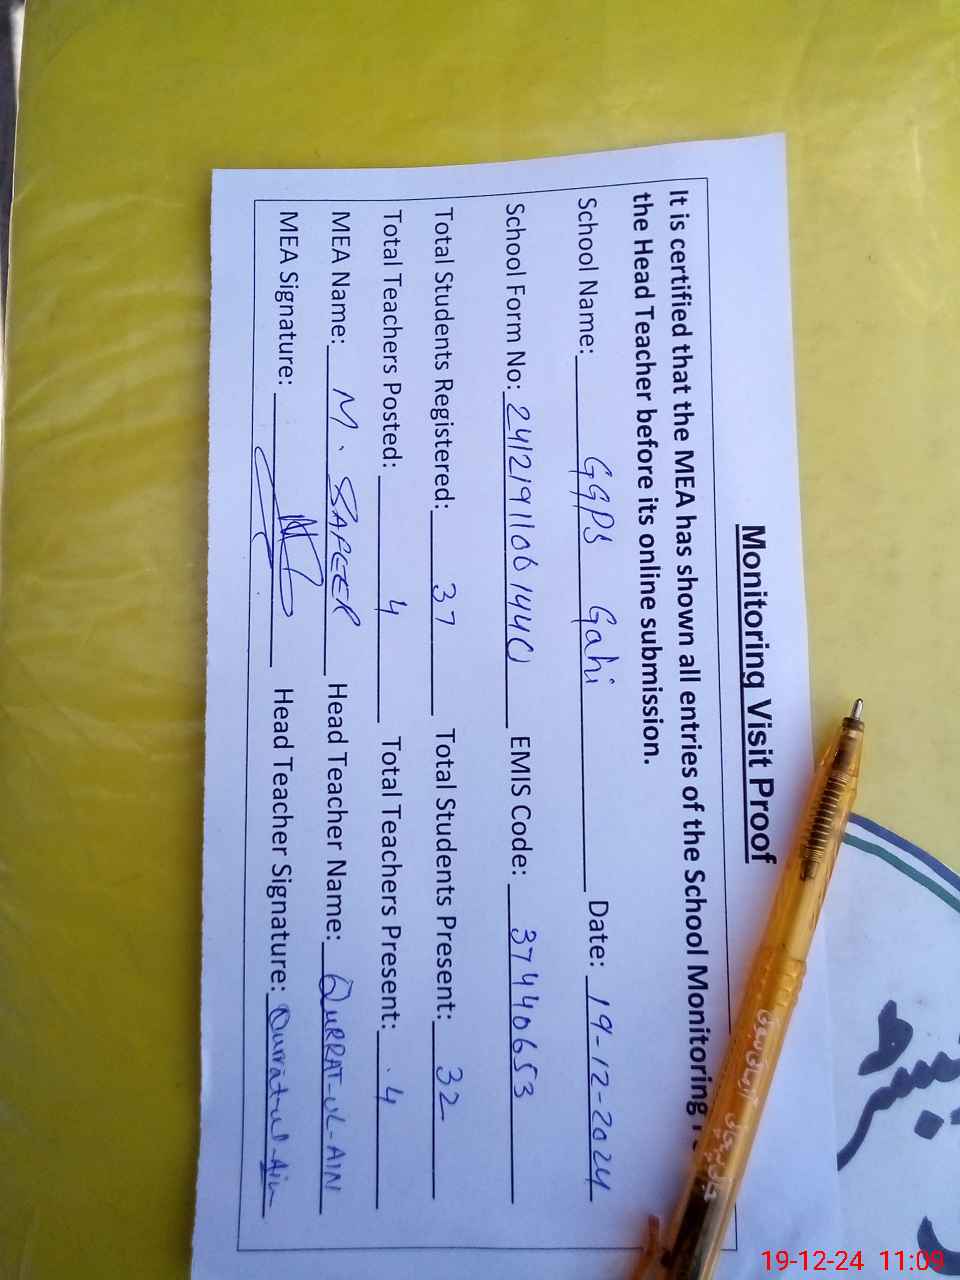 Monitoring Visit Proof
It is certified that the MEA has shown all entries of the School Monitoring
the Head Teacher before its online submission.
School Name: GGPS Gahi Date: 19-12-2024
School Form No: EMIS Code: 37440653
Total Students Registered: 37 Total Students Present: 32
Total Teachers Posted: 4 Total Teachers Present: 4
MEA Name: M. SAFEER Head Teacher Name: QURRAT-UL-AIN
MEA Signature: Head Teacher Signature: Qurrat-ul-Ain
19-12-24 11:09